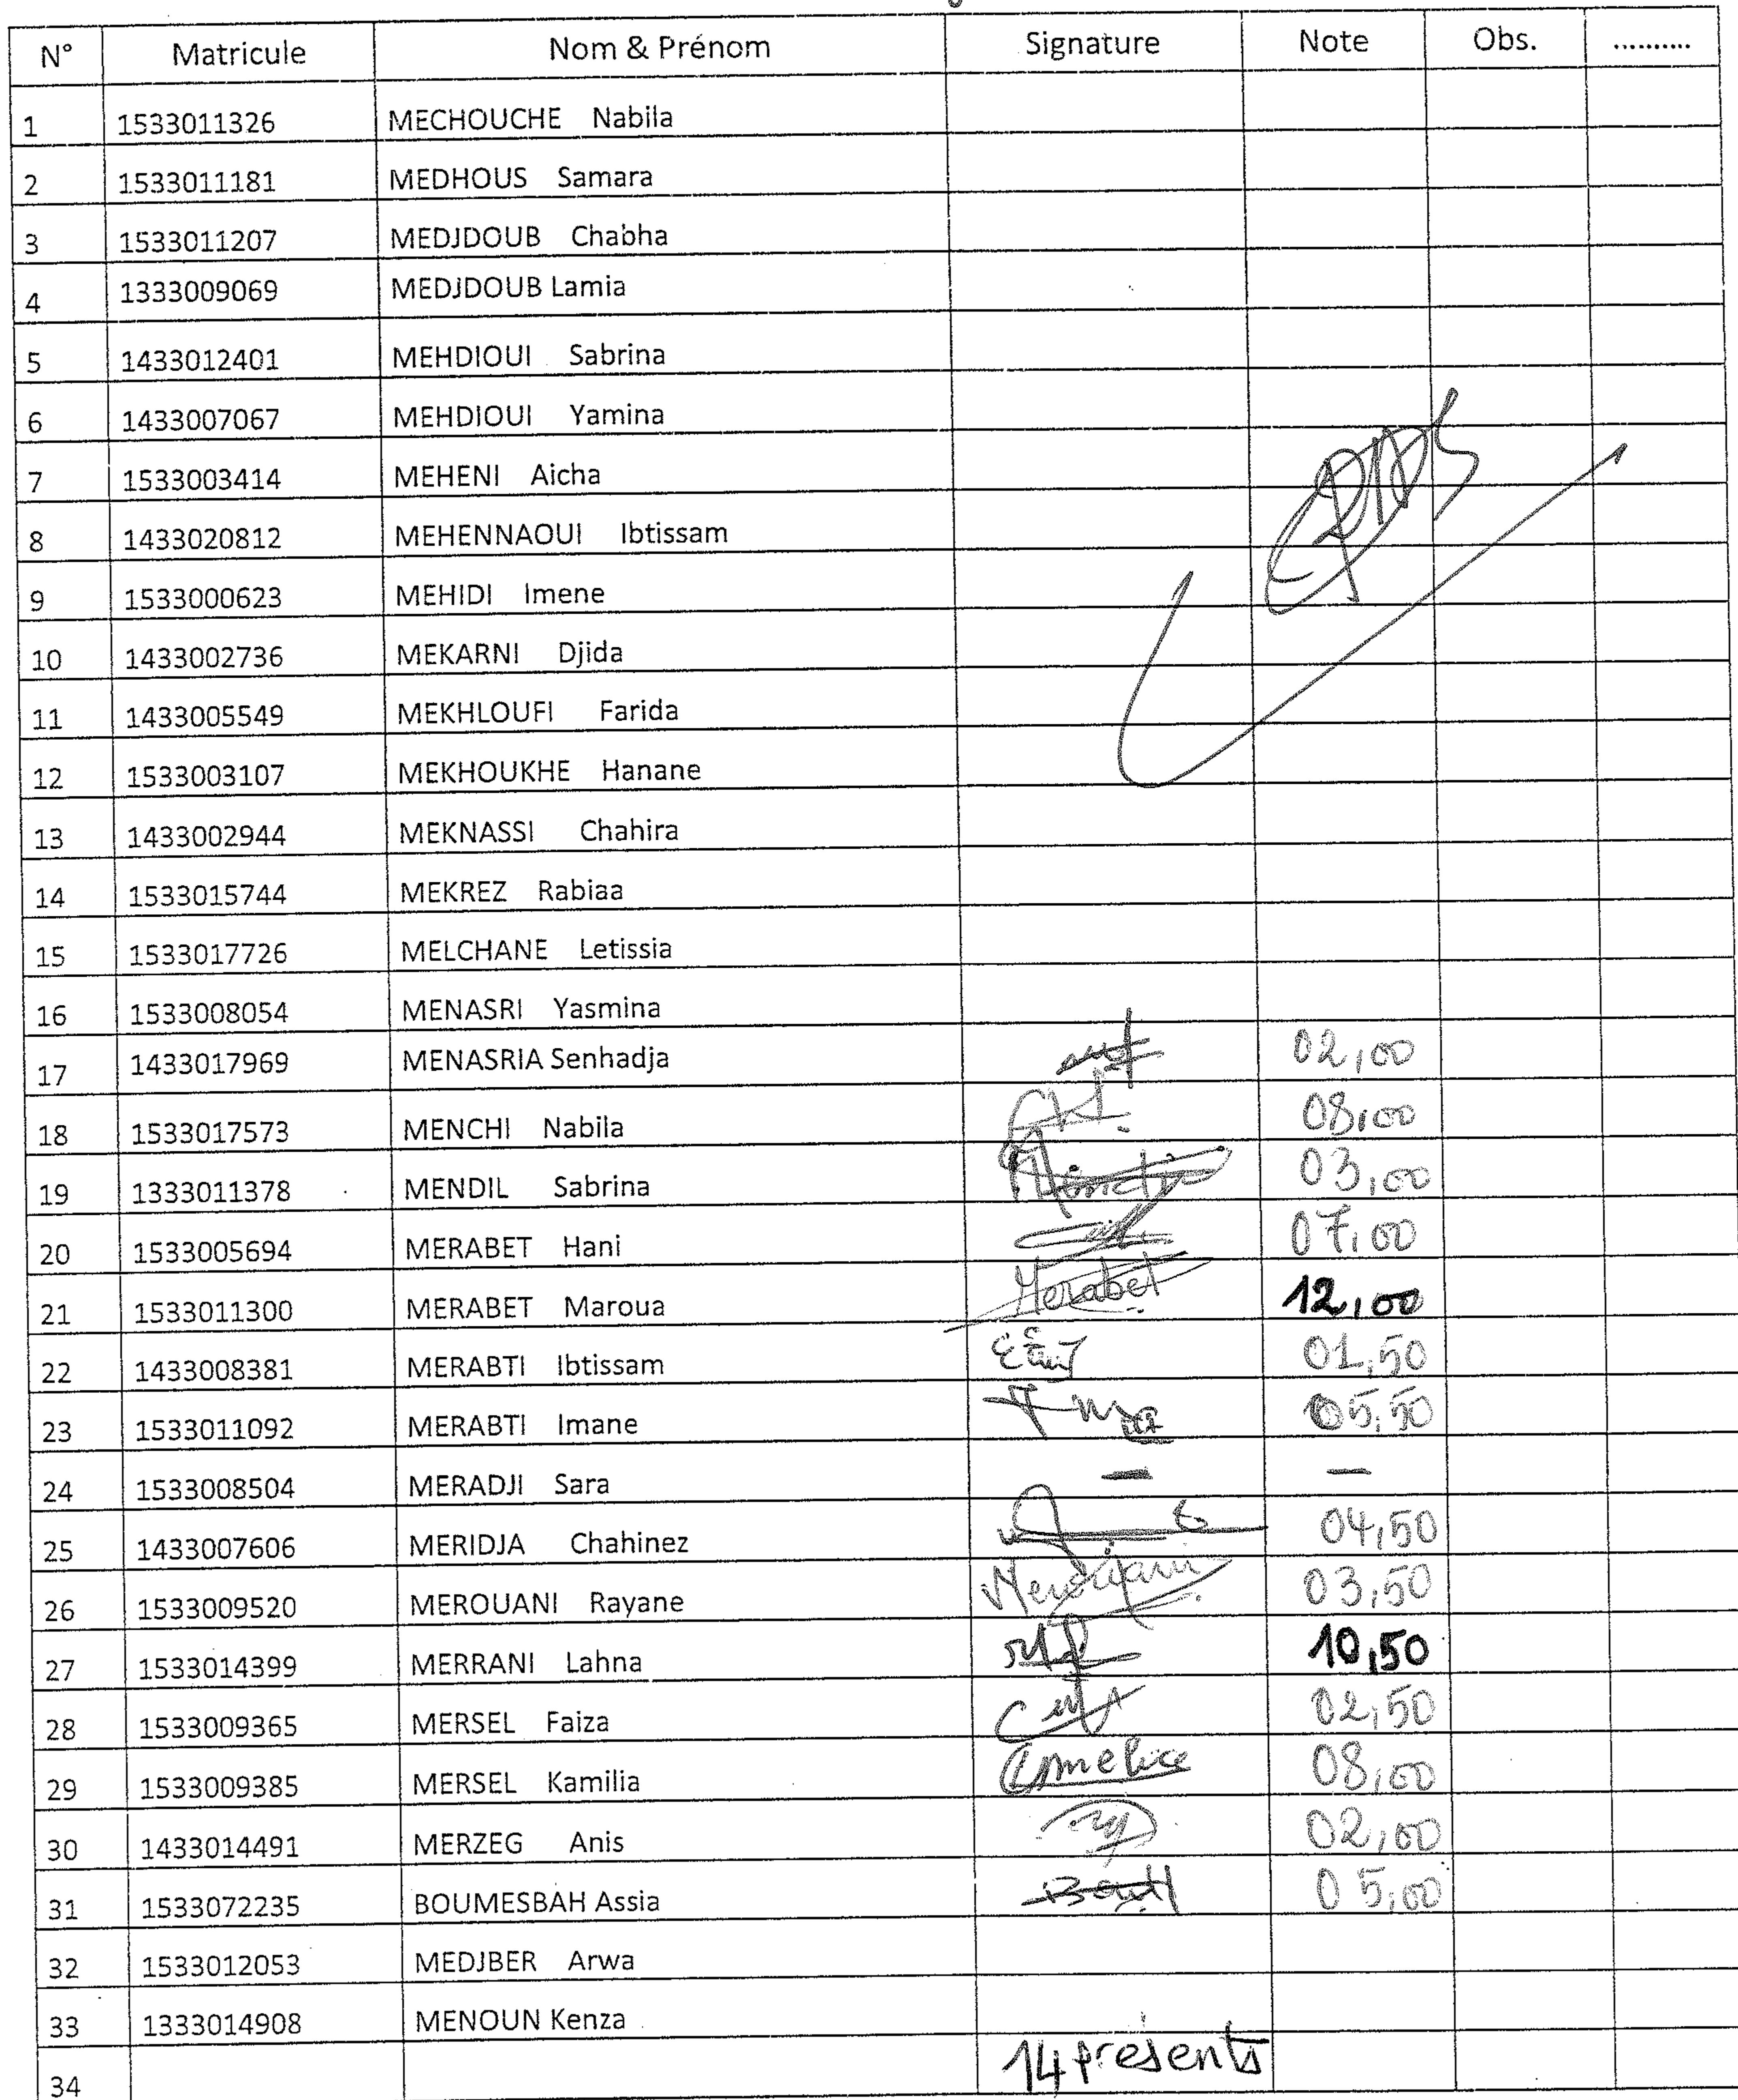 N° Matricule Nom & Prénom Signature Note Obs. ..........
1 1533011326 MECHOUCHE Nabila
2 1533011181 MEDHOUS Samara
3 1533011207 MEDJDOUB Chabha
4 1333009069 MEDJDOUB Lamia
5 1433012401 MEHDIOUI Sabrina
6 1433007067 MEHDIOUI Yamina
7 1533003414 MEHENI Aicha
8 1433020812 MEHENNAOUI Ibtissam
9 1533000623 MEHIDI Imene
10 1433002736 MEKARNI Djida
11 1433005549 MEKHLOUFI Farida
12 1533003107 MEKHOUKHE Hanane
13 1433002944 MEKNASSI Chahira
14 1533015744 MEKREZ Rabiaa
15 1533017726 MELCHANE Letissia
16 1533008054 MENASRI Yasmina
17 1433017969 MENASRIA Senhadja 02,00
18 1533017573 MENCHI Nabila 08,00
19 1333011378 MENDIL Sabrina 03,00
20 1533005694 MERABET Hani 07,00
21 1533011300 MERABET Maroua Merabet 12,00
22 1433008381 MERABTI Ibtissam 01,50
23 1533011092 MERABTI Imane 05,50
24 1533008504 MERADJI Sara — —
25 1433007606 MERIDJA Chahinez 04,50
26 1533009520 MEROUANI Rayane Merouani 03,50
27 1533014399 MERRANI Lahna 10,50
28 1533009365 MERSEL Faiza 02,50
29 1533009385 MERSEL Kamilia 08,00
30 1433014491 MERZEG Anis 02,00
31 1533072235 BOUMESBAH Assia 05,00
32 1533012053 MEDJBER Arwa
33 1333014908 MENOUN Kenza
34 14 présents